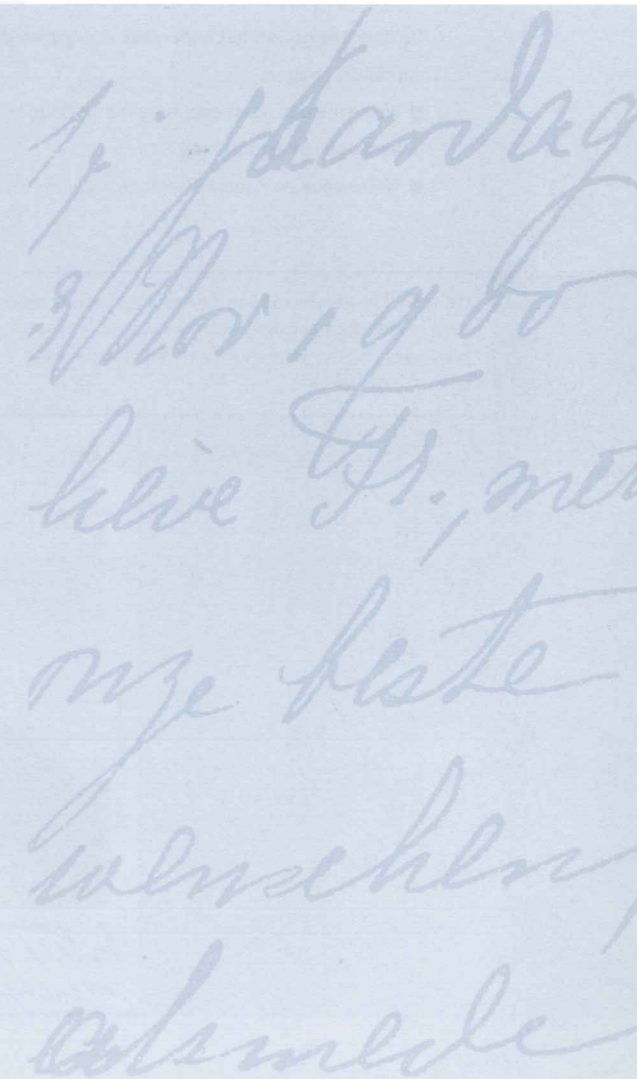 1, jaardag
3 Nov 1900
lieve Fr., met
onze beste
wenschen,
alsmede